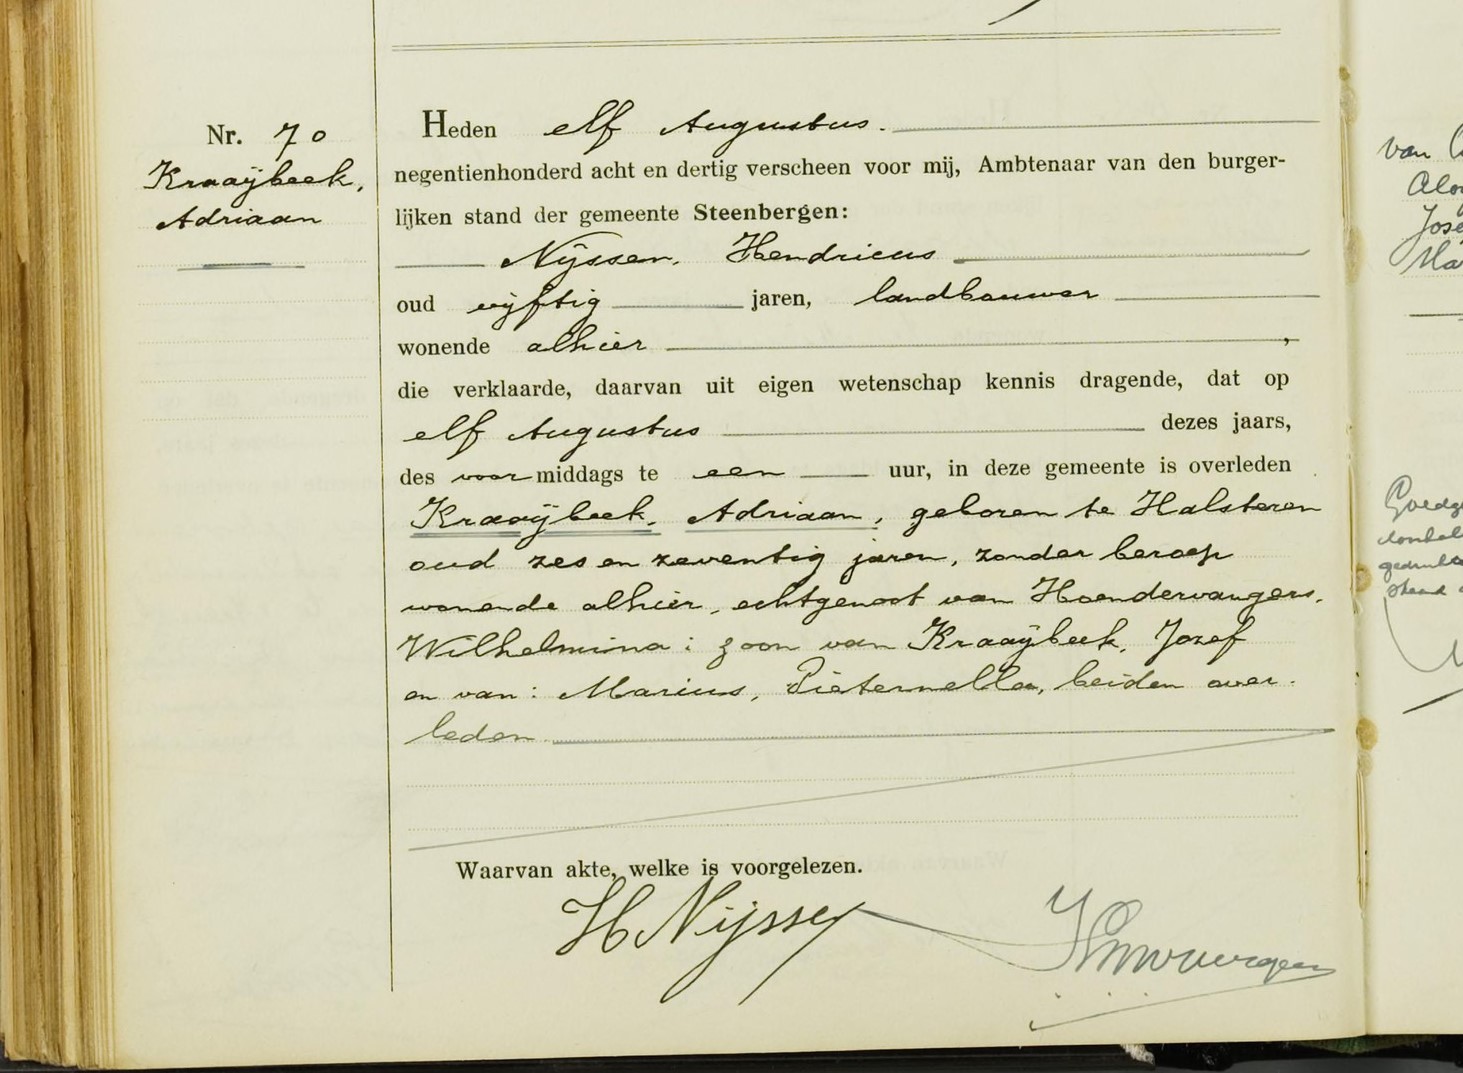 Nr. 70
Kraaijbeek,
Adriaan
Heden elf Augustus.
negentienhonderd acht en dertig verscheen voor mij, Ambtenaar van den burger-
lijken stand der gemeente Steenbergen:
Nijssen, Hendricus
oud vijftig jaren, landbouwer
wonende alhier ,
die verklaarde, daarvan uit eigen wetenschap kennis dragende, dat op
elf Augustus dezes jaars,
des voormiddags te een uur, in deze gemeente is overleden
Kraaijbeek, Adriaan, geboren te Halsteren
oud zes en zeventig jaren, zonder beroep
wonende alhier, echtgenoot van Hoendervangers,
Wilhelmina; zoon van Kraaijbeek, Jozef
en van: Marius, Pieternella, beiden over-
leden
Waarvan akte, welke is voorgelezen.
H Nijssen
van